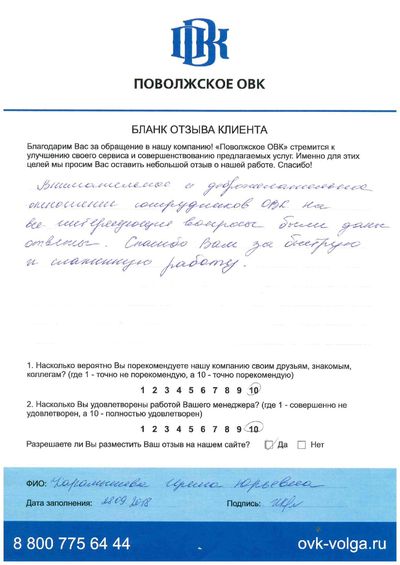 ОВК
ПОВОЛЖСКОЕ ОВК
БЛАНК ОТЗЫВА КЛИЕНТА
Благодарим Вас за обращение в нашу компанию! «Поволжское ОВК» стремится к
улучшению своего сервиса и совершенствованию предлагаемых услуг. Именно для этих
целей мы просим Вас оставить небольшой отзыв о нашей работе. Спасибо!
Внимательное и доброжелательное
отношение сотрудников ОВК. На
все интересующие вопросы были даны
ответы. Спасибо Вам за быструю
и слаженную работу.
1. Насколько вероятно Вы порекомендуете нашу компанию своим друзьям, знакомым,
коллегам? (где 1 - точно не порекомендую, а 10 - точно порекомендую)
1 2 3 4 5 6 7 8 9 10
2. Насколько Вы удовлетворены работой Вашего менеджера? (где 1 - совершенно не
удовлетворен, а 10 - полностью удовлетворен)
1 2 3 4 5 6 7 8 9 10
Разрешаете ли Вы разместить Ваш отзыв на нашем сайте? Да Нет
ФИО: Ирина Юрьевна
Дата заполнения: 28.09.2018 Подпись:
8 800 775 64 44 ovk-volga.ru